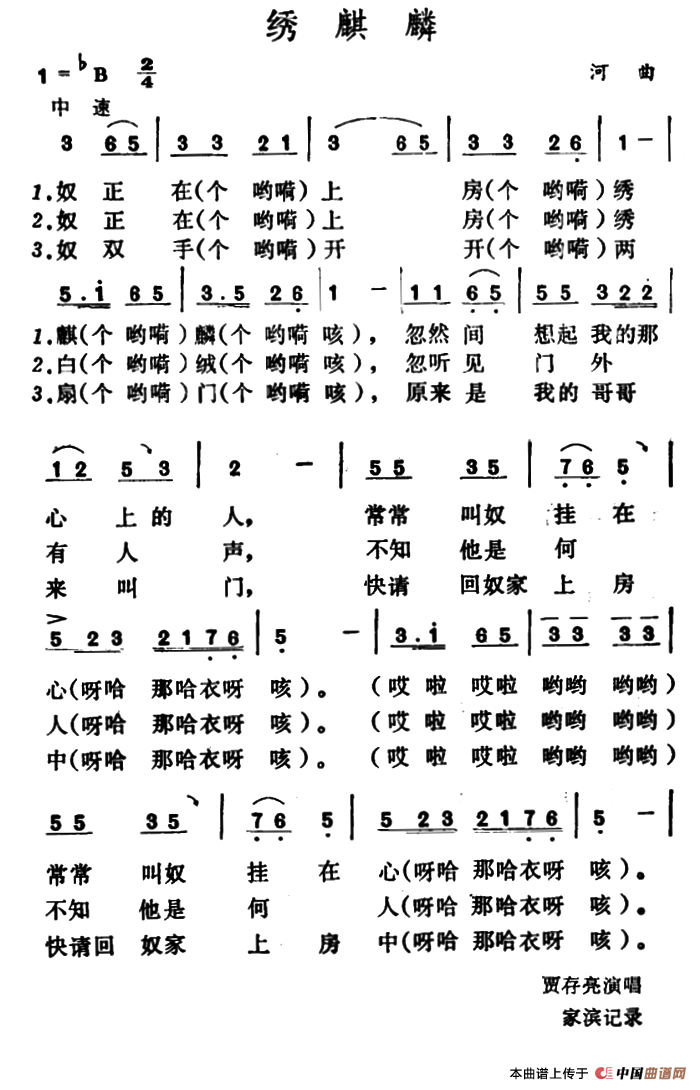 绣麒麟
1=♭B 2/4 河曲
中速
3 65 | 33 21 | 3 65 | 33 26 | 1 - |
1.奴正在(个哟嗬)上房(个哟嗬)绣
2.奴正在(个哟嗬)上房(个哟嗬)绣
3.奴双手(个哟嗬)开开(个哟嗬)两
5.i 65 | 3.5 26 | 1 - | 11 65 | 55 322 |
1.麒(个哟嗬)麟(个哟嗬咳),忽然间想起我的那
2.白(个哟嗬)绒(个哟嗬咳),忽听见门外
3.扇(个哟嗬)门(个哟嗬咳),原来是我的哥哥
12 53 | 2 - | 55 35 | 76 5 |
心上的人,常常叫奴挂在
有人声,不知他是何
来叫门,快请回奴家上房
5 23 2176 | 5 - | 3.i 65 | 33 33 |
心(呀哈那哈衣呀咳)。(哎啦哎啦哟哟哟哟)
人(呀哈那哈衣呀咳)。(哎啦哎啦哟哟哟哟)
中(呀哈那哈衣呀咳)。(哎啦哎啦哟哟哟哟)
55 35 | 76 5 | 5 23 2176 | 5 - |
常常叫奴挂在心(呀哈那哈衣呀咳)。
不知他是何人(呀哈那哈衣呀咳)。
快请回奴家上房中(呀哈那哈衣呀咳)。
贾存亮演唱
家滨记录
本曲谱上传于 中国曲谱网